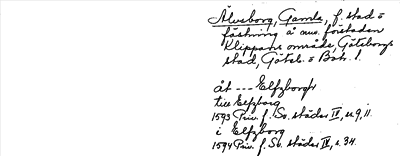 Älvsborg, Gamla, f. stad o
fästning å nuv. förstaden
Klippans område, Göteborgs
stad, Göteb. o Boh. l.
åt --- Elfzborgh
till Elfzborg
1593 Priv. f. Sv. städer IV, s. 9, 11.
i Elfzborg
1594 Priv. f. Sv. städer IV, s. 34.